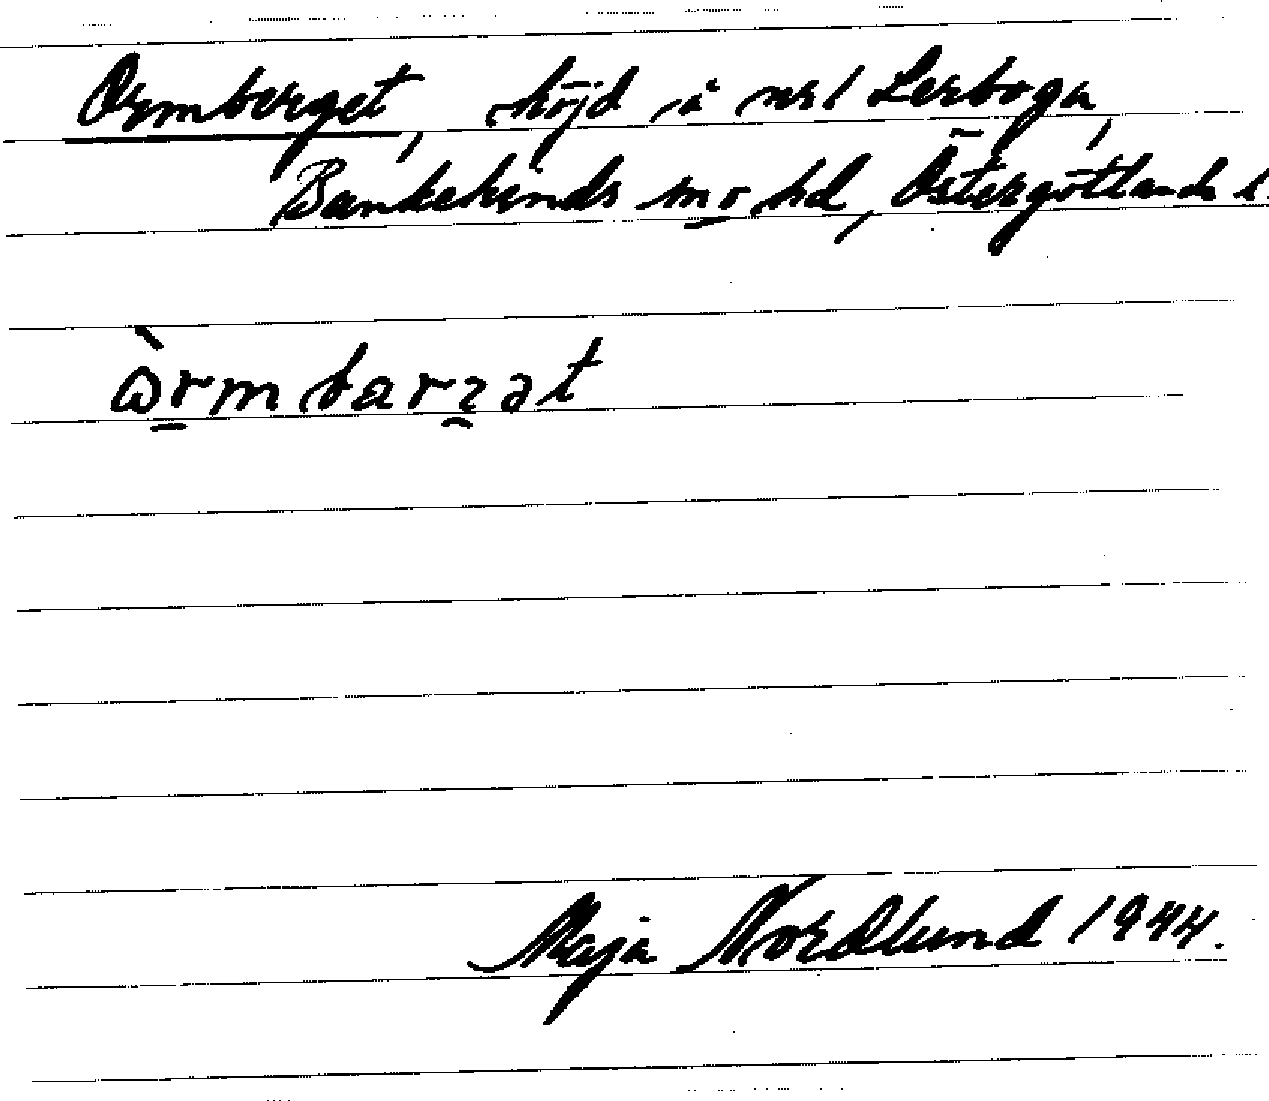 Ormberget, höjd å nr 1 Lerboga,
Bankekinds sn o hd, Östergötlands l.
ὼrmbarzət
Maja Nordlund 1944.